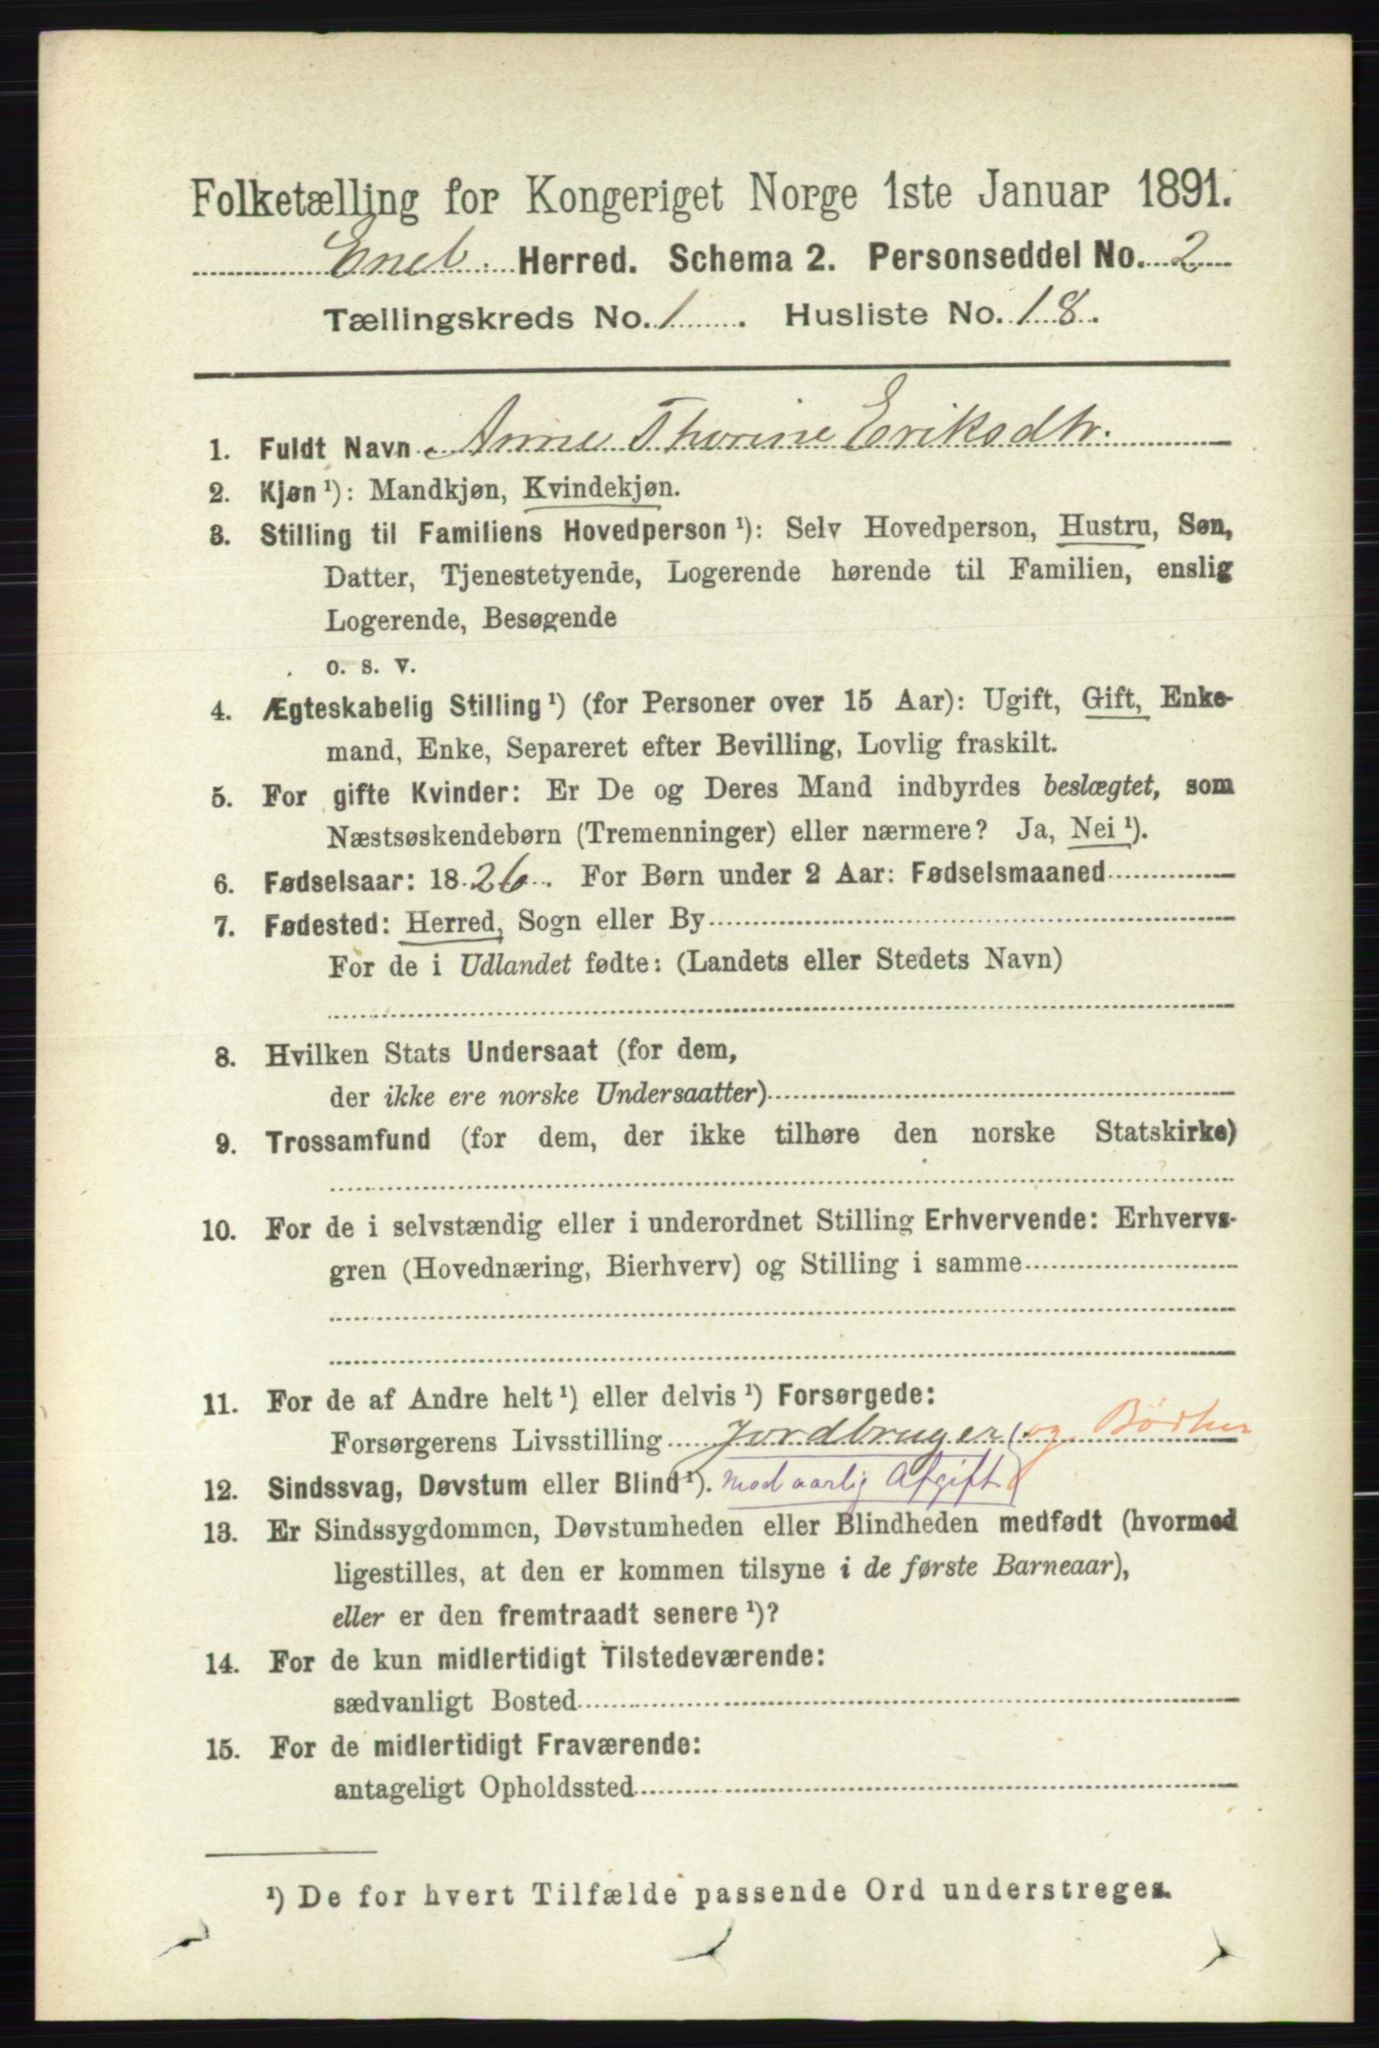 Folketælling for Kongeriget Norge 1ste Januar 1891.
Eneb. Herred. Schema 2. Personseddel No. 2
Tællingskreds No. 1. Husliste No. 18.
1. Fuldt Navn Anne Thorine Eriksdtr.
2. Kjøn ¹): Mandkjøn, Kvindekjøn.
3. Stilling til Familiens Hovedperson ¹): Selv Hovedperson, Hustru, Søn,
Datter, Tjenestetyende, Logerende hørende til Familien, enslig
Logerende, Besøgende
o. s. v.
4. Ægteskabelig Stilling ¹) (for Personer over 15 Aar): Ugift, Gift, Enke-
mand, Enke, Separeret efter Bevilling, Lovlig fraskilt.
5. For gifte Kvinder: Er De og Deres Mand indbyrdes beslægtet, som
Næstsøskendebørn (Tremenninger) eller nærmere? Ja, Nei ¹).
6. Fødselsaar: 1826. For Børn under 2 Aar: Fødselsmaaned
7. Fødested: Herred, Sogn eller By
For de i Udlandet fødte: (Landets eller Stedets Navn)
8. Hvilken Stats Undersaat (for dem,
der ikke ere norske Undersaatter)
9. Trossamfund (for dem, der ikke tilhøre den norske Statskirke)
10. For de i selvstændig eller i underordnet Stilling Erhvervende: Erhvervs-
gren (Hovednæring, Bierhverv) og Stilling i samme
11. For de af Andre helt ¹) eller delvis ¹) Forsørgede:
Forsørgerens Livsstilling Jordbruger og Bødker
12. Sindssvag, Døvstum eller Blind ¹). mod aarlig Afgift
13. Er Sindssygdommen, Døvstumheden eller Blindheden medfødt (hvormed
ligestilles, at den er kommen tilsyne i de første Barneaar),
eller er den fremtraadt senere ¹)?
14. For de kun midlertidigt Tilstedeværende:
sædvanligt Bosted
15. For de midlertidigt Fraværende:
antageligt Opholdssted
¹) De for hvert Tilfælde passende Ord understreges.